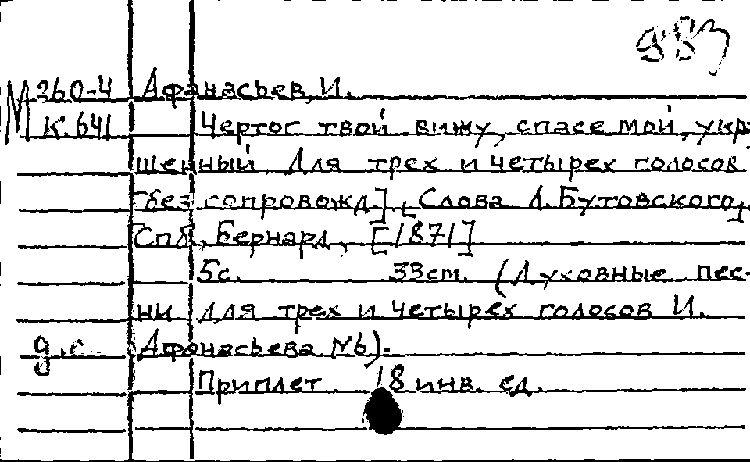 983
М 260-4 Афанасьев, И.
К. 641 Чертог твой вижу, спасе мой, укр
шенный. Для трех и четырех голосов
[без сопровожд]. [Слова А. Бутовского]
Спб, Бернард, [1871]
5с. 33см. (Духовные пес-
ни для трех и четырех голосов И.
д.с. Афонасьева №6).
Приплет 18 инв. ед.